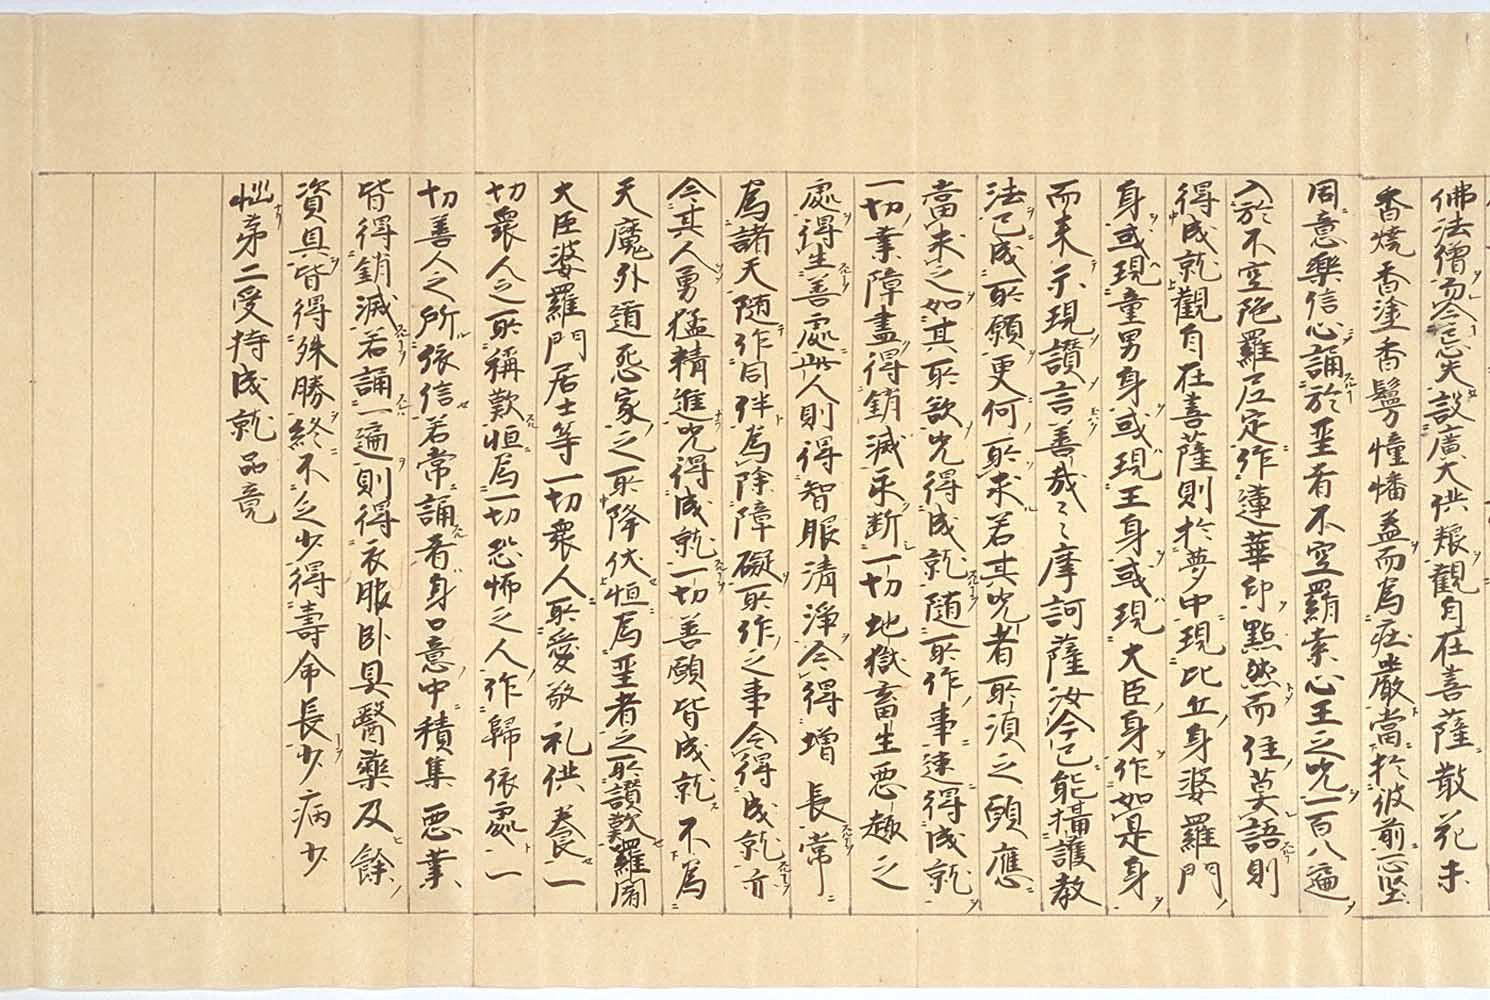 佛法僧勿令忘失設廣大供粮觀自在菩薩散花末
香燒香塗香鬘幢幡蓋而為庄嚴當於彼前心堅
同意樂信心誦於聖者不空羂索心王之咒一百八遍
入於不空陀羅尼定作蓮華印默然而住莫語則
得成就觀自在菩薩則於夢中現比丘身婆羅門
身或現童男身或現王身或現大臣身作如是身
而来示現讃言善哉々々摩訶薩汝今已能攝護教
法已成所願更何所求若其咒者所須之願應
當求之如其所欲咒得成就随所作事速得成就
一切業障盡得銷滅永断一切地獄畜生悪趣之
處得生善處此人則得智眼清淨令得增長常
為諸天随作同伴為除障礙所作之事令得成就亦
令其人勇猛精進咒得成就一切善願皆成就不為
天魔外道惡家之所降伏恒為聖者之所讃歎羅闍
大臣婆羅門居士等一切衆人所愛敬礼供養一
切衆人之所稱歎恒為一切恐怖之人作歸依處一
切善人之所依信若常誦者身口意中積集悪業
皆得銷滅若誦一遍則得衣服卧具醫藥及餘
資具皆得殊勝終不乏少得壽命長少病少
惱第二受持成就品竟